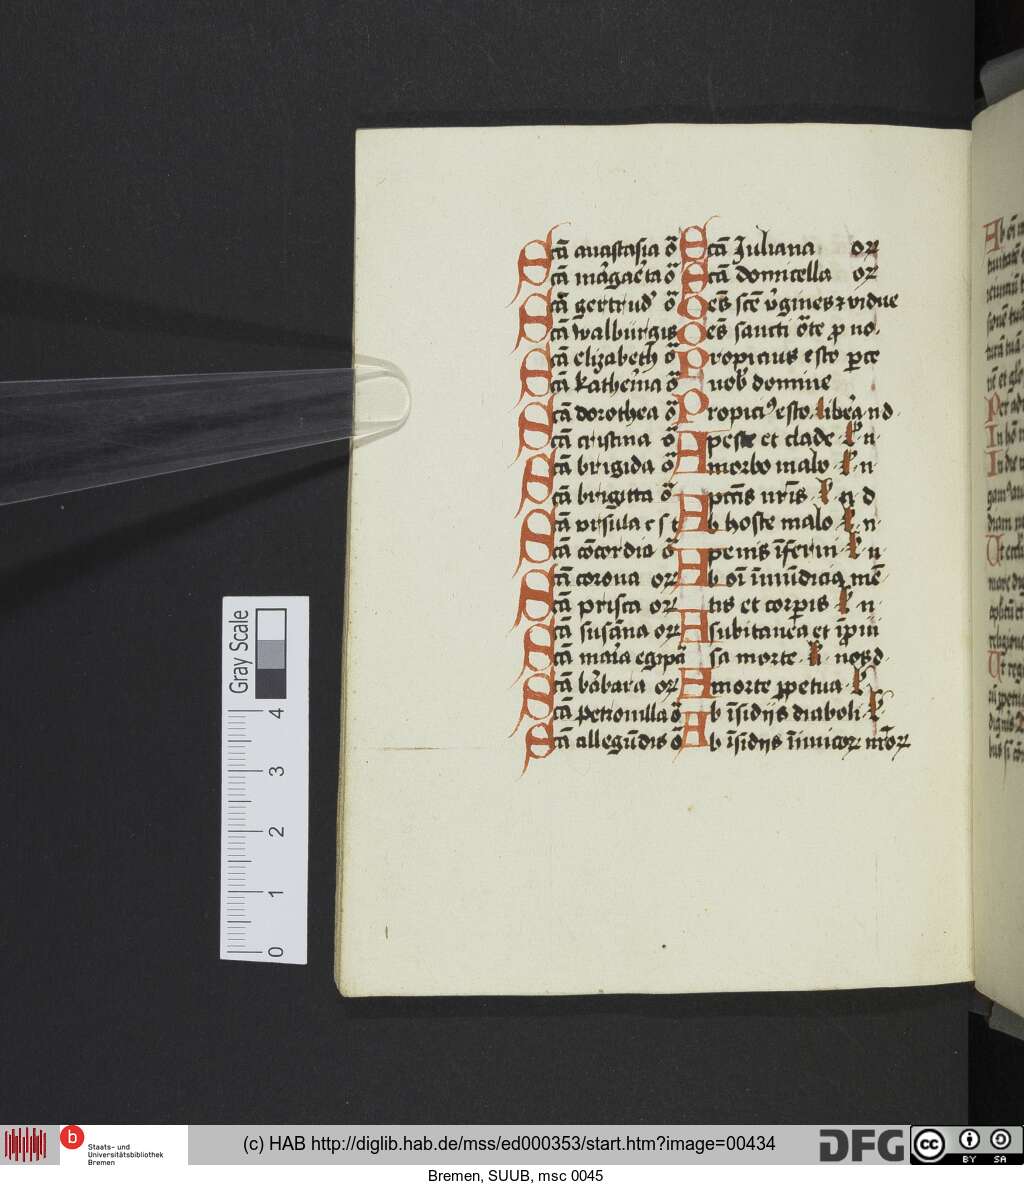 Scā anastasia ō
Scā m̄gaēta ō
Scā gertrud' ō
Scā walburgis
Scā elizabeth ō
Scā katheīna ō
Scā dorothea ō
Scā cristina ō
Scā brigida ō
Scā brigitta ō
Scā vrsula c s t
Scā cōcordia ō
Scā corona or
Scā prisca or
Scā susāna or
Scā maīa egipā
Scā bābara or
Scā petronilla ō
Scā allegūdis ō
Scā Juliana or
Scā domicella or
Oēs scē v̄gines ⁊ vidue
Oēs sancti ōte p no
Propicius esto pce
nob' domine
Propici⁹ esto. libēa nd
A peste et clade. l n
A morbo malo. l n
A pctīs nr̄is. l n d
Ab hoste malo. l n
A penis īferni. l n
Ab oī īmūdicia mē
tis et corpis l n
A subitanea et īpui
sa morte. l nos d
A morte ppetua. l
Ab īsidijs diaboli. l
Ab īsidijs īimicor nr̄or
Gray Scale
4
3
2
1
0
b
Staats- und
Universitätsbibliothek
Bremen
(c) HAB http://diglib.hab.de/mss/ed000353/start.htm?image=00434
DFG
cc
BY SA
Bremen, SUUB, msc 0045